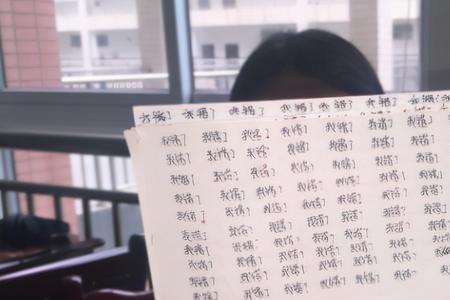 我错了 我错了 我错了 我错了 我错了 我错了 我错了
我错了 我错了 我错了 我错了 我错了 我错了 我错了
我错了 我错了 我错了 我错了 我错了 我错了 我错了
我错了 我错了 我错了 我错了 我错了 我错了 我错了
我错了 我错了 我错了 我错了 我错了 我错了 我错了
我错了 我错了 我错了 我错了 我错了 我错了 我错了
我错了 我错了 我错了 我错了 我错了 我错了 我错了
我错了 我错了 我错了 我错了 我错了 我错了 我错了
我错了 我错了 我错了 我错了 我错了 我错了 我错了
我错了 我错了 我错了 我错了 我错了 我错了 我错了
我错了 我错了 我错了 我错了 我错了 我错了 我错了